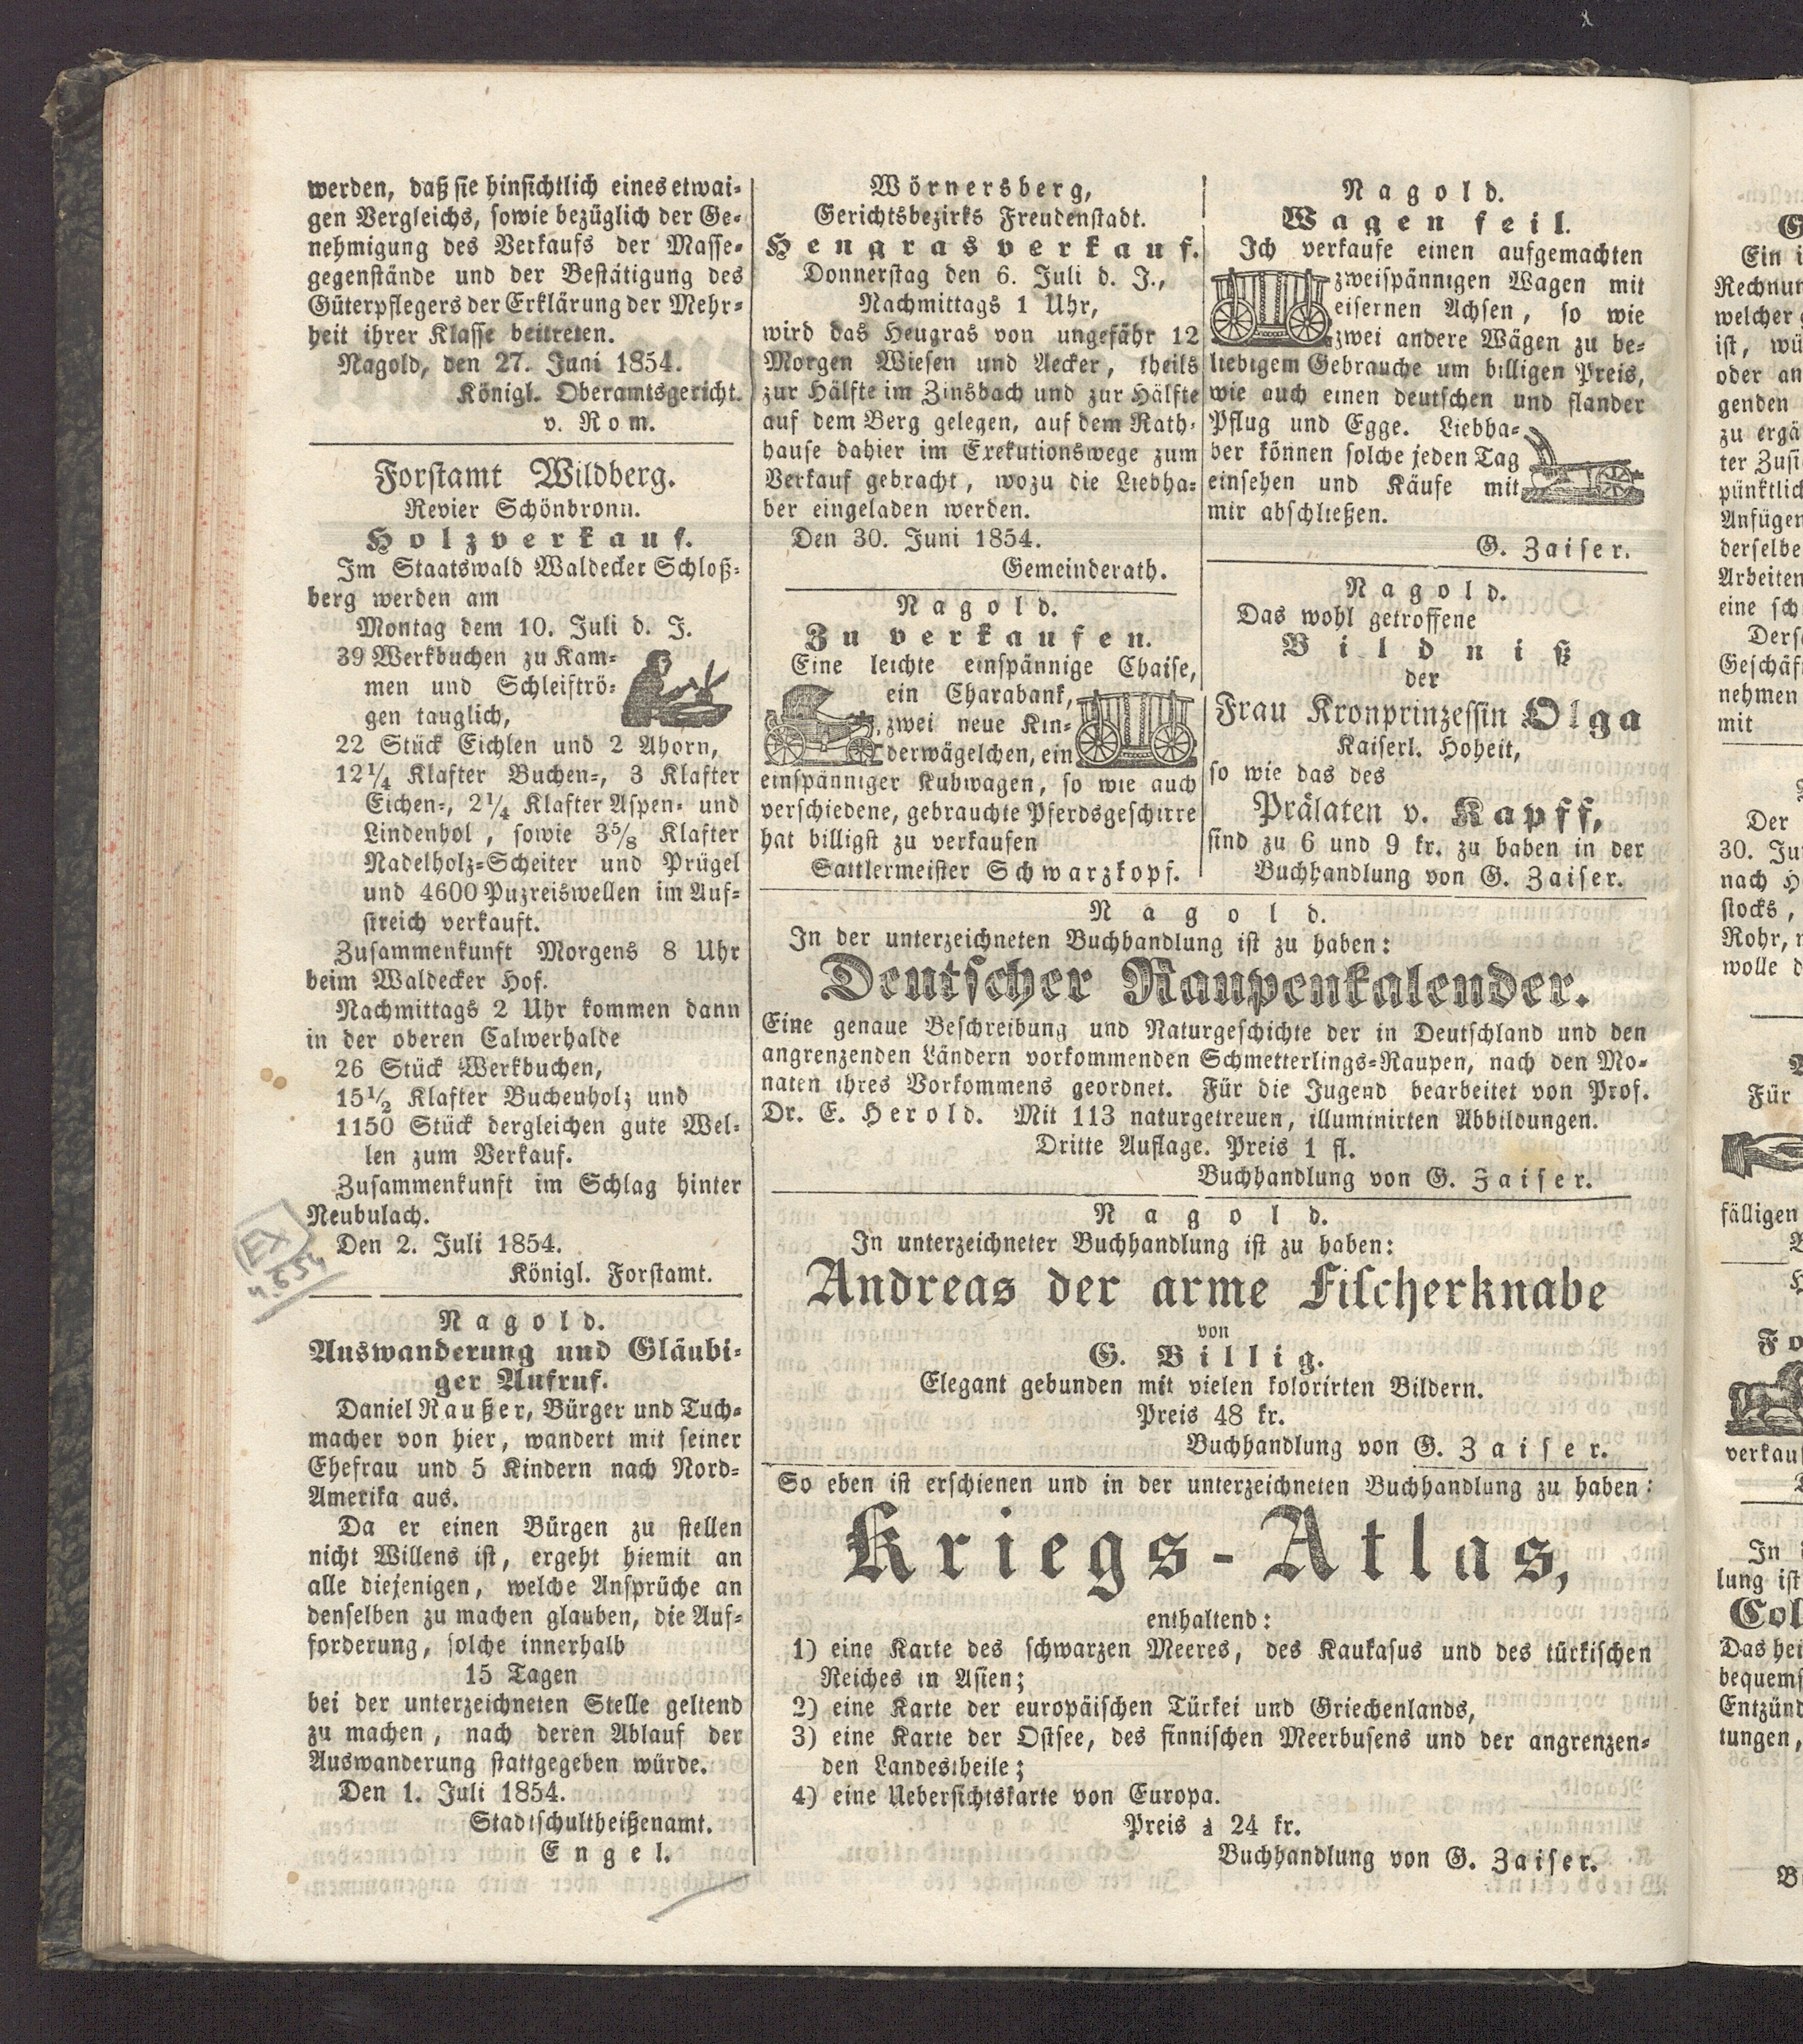 werden, daß sie hinsichtlich eines etwai-
gen Vergleichs, sowie bezüglich der Ge-
nehmigung des Verkaufs der Masse-
gegenstände und der Bestätigung des
Güterpflegers der Erklärung der Mehr-
heit ihrer Klasse beitreten.
Nagold, den 27. Juni 1854.
Königl. Oberamtsgericht.
v. Rom.
Forstamt Wildberg.
Revier Schönbronn.
Holzverkauf.
Im Staatswald Waldecker Schloß-
berg werden am
Montag dem 10. Juli d. J.
39 Werkbuchen zu Kam-
men und Schleiftrö-
gen tauglich,
22 Stück Eichlen und 2 Ahorn,
12 1/4 Klafter Buchen-, 3 Klafter
Eichen-, 2 1/4 Klafter Aspen- und
Lindenhol , sowie 3 5/8 Klafter
Nadelholz-Scheiter und Prügel
und 4600 Puzreiswellen im Auf-
streich verkauft.
Zusammenkunft Morgens 8 Uhr
beim Waldecker Hof.
Nachmittags 2 Uhr kommen dann
in der oberen Calwerhalde
26 Stück Werkbuchen,
15 1/2 Klafter Buchenholz und
1150 Stück dergleichen gute Wel-
len zum Verkauf.
Zusammenkunft im Schlag hinter
Neubulach.
Den 2. Juli 1854.
Königl. Forstamt.
Nagold.
Auswanderung und Gläubi-
ger Aufruf.
Daniel Raußer, Bürger und Tuch-
macher von hier, wandert mit seiner
Ehefrau und 5 Kindern nach Nord-
Amerika aus.
Da er einen Bürgen zu stellen
nicht Willens ist, ergeht hiemit an
alle diejenigen, welche Ansprüche an
denselben zu machen glauben, die Auf-
forderung, solche innerhalb
15 Tagen
bei der unterzeichneten Stelle geltend
zu machen, nach deren Ablauf der
Auswanderung stattgegeben würde.
Den 1. Juli 1854.
Stadtschultheißenamt.
Engel.
Wörnersberg,
Gerichtsbezirks Freudenstadt.
Heugrasverkauf.
Donnerstag den 6. Juli d. J.,
Nachmittags 1 Uhr,
wird das Heugras von ungefähr 12
Morgen Wiesen und Aecker, theils
zur Hälfte im Zinsbach und zur Hälfte
auf dem Berg gelegen, auf dem Rath-
hause dahier im Exekutionswege zum
Verkauf gebracht, wozu die Liebha-
ber eingeladen werden.
Den 30. Juni 1854.
Gemeinderath.
Nagold.
Zu verkaufen.
Eine leichte einspännige Chaise,
ein Charabank,
zwei neue Kin-
derwägelchen, ein
einspänniger Kuhwagen, so wie auch
verschiedene, gebrauchte Pferdsgeschirre
hat billigst zu verkaufen
Sattlermeister Schwarzkopf.
Nagold.
Wagen feil.
Ich verkaufe einen aufgemachten
zweispännigen Wagen mit
eisernen Achsen, so wie
zwei andere Wägen zu be-
liebigem Gebrauche um billigen Preis,
wie auch einen deutschen und flander
Pflug und Egge. Liebha-
ber können solche jeden Tag
einsehen und Käufe mit
mir abschließen.
G. Zaiser.
Nagold.
Das wohl getroffene
Bildniß
der
Frau Kronprinzessin Olga
Kaiserl. Hoheit,
so wie das des
Prälaten v. Kapff,
sind zu 6 und 9 kr. zu haben in der
Buchhandlung von G. Zaiser.
Nagold.
In der unterzeichneten Buchhandlung ist zu haben:
Deutscher Raupenkalender.
Eine genaue Beschreibung und Naturgeschichte der in Deutschland und den
angrenzenden Ländern vorkommenden Schmetterlings-Raupen, nach den Mo-
naten ihres Vorkommens geordnet. Für die Jugend bearbeitet von Prof.
Dr. E. Herold. Mit 113 naturgetreuen, illuminirten Abbildungen.
Dritte Auflage. Preis 1 fl.
Buchhandlung von G. Zaiser.
Nagold.
In unterzeichneter Buchhandlung ist zu haben:
Andreas der arme Fischerknabe
von
G. Billig.
Elegant gebunden mit vielen kolorirten Bildern.
Preis 48 kr.
Buchhandlung von G. Zaiser.
So eben ist erschienen und in der unterzeichneten Buchhandlung zu haben:
Kriegs-Atlas,
enthaltend:
1) eine Karte des schwarzen Meeres, des Kaukasus und des türkischen
Reiches in Asien;
2) eine Karte der europäischen Türkei und Griechenlands,
3) eine Karte der Ostsee, des finnischen Meerbusens und der angrenzen-
den Landestheile;
4) eine Uebersichtskarte von Europa.
Preis à 24 kr.
Buchhandlung von G. Zaiser.
Ein
welcher
ist,
oder an
genden
Anfügen
Arbeiten
nehmen
mit
Der
nach
stocks,
wolle
Für
fälligen
In
lung ist
tungen,